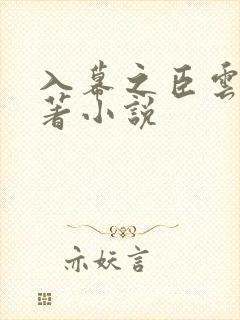 入幕之臣雲
著小説
亦妖言